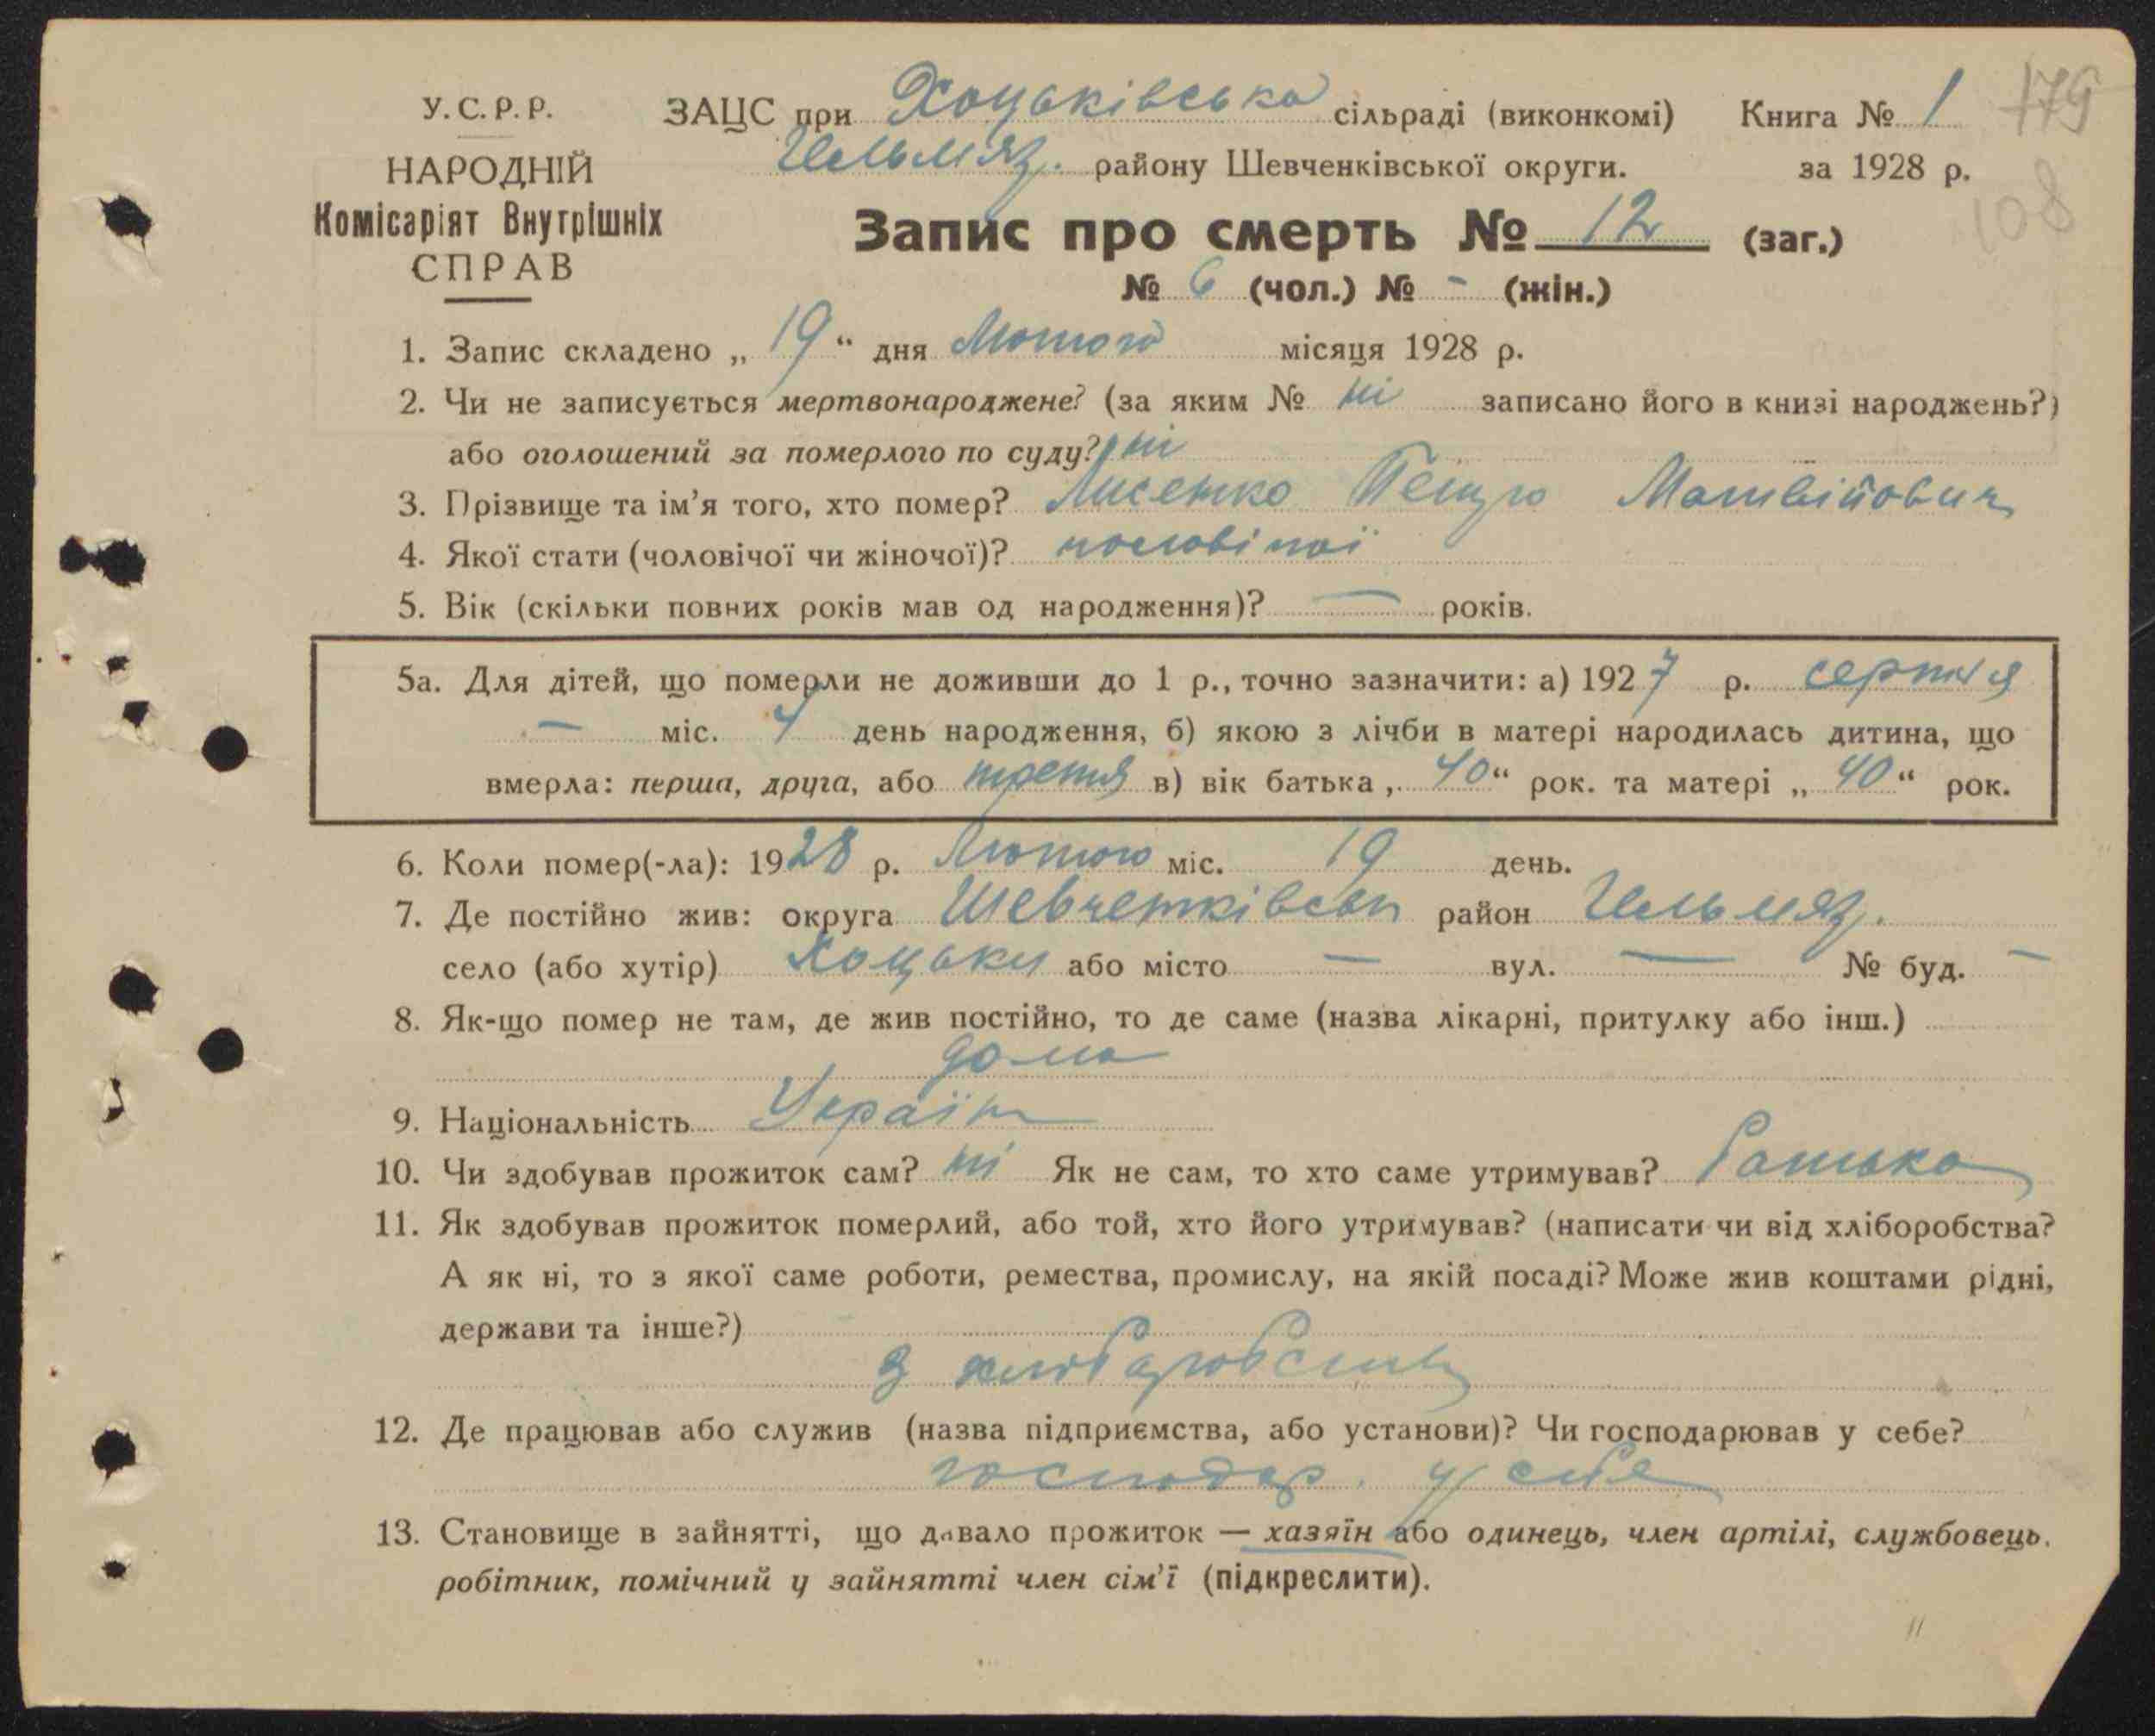 У.С.Р.Р. ЗАЦС при Хоцьківська сільраді (виконкомі) Книга № 1 179
Гельмяз. району Шевченківської округи. за 1928 р.
НАРОДНІЙ
Комісаріят Внутрішніх
СПРАВ
108
Запис про смерть № 12 (заг.)
№ 6 (чол.) № - (жін.)
1. Запис складено „ 19 “ дня Лютого місяця 1928 р.
2. Чи не записується мертвонароджене? (за яким № ні записано його в книзі народжень?)
або оголошений за померлого по суду? ні
3. Прізвище та ім’я того, хто помер? Лисенко Петро Матвійович
4. Якої стати (чоловічої чи жіночої)? чоловічої
5. Вік (скільки повних років мав од народження)? — років.
5а. Для дітей, що померли не доживши до 1 р., точно зазначити: а) 1927 р. серпня
— міс. 4 день народження, б) якою з лічби в матері народилась дитина, що
вмерла: перша, друга, або третя в) вік батька „ 40 “ рок. та матері „ 40 “ рок.
6. Коли помер(-ла): 1928 р. Лютого міс. 19 день.
7. Де постійно жив: округа Шевченківськ район Гельмяз.
село (або хутір) Хоцьки або місто — вул. — № буд. —
8. Як-що помер не там, де жив постійно, то де саме (назва лікарні, притулку або інш.)
дома
9. Національність Україн
10. Чи здобував прожиток сам? ні Як не сам, то хто саме утримував? батько
11. Як здобував прожиток померлий, або той, хто його утримував? (написати чи від хліборобства?
А як ні, то з якої саме роботи, ремества, промислу, на якій посаді? Може жив коштами рідні,
держави та інше?)
з хліборобства
12. Де працював або служив (назва підприємства, або установи)? Чи господарював у себе?
господар. у себе
13. Становище в зайнятті, що давало прожиток — хазяїн або одинець, член артілі, службовець.
робітник, помічний у зайнятті член сім’ї (підкреслити).